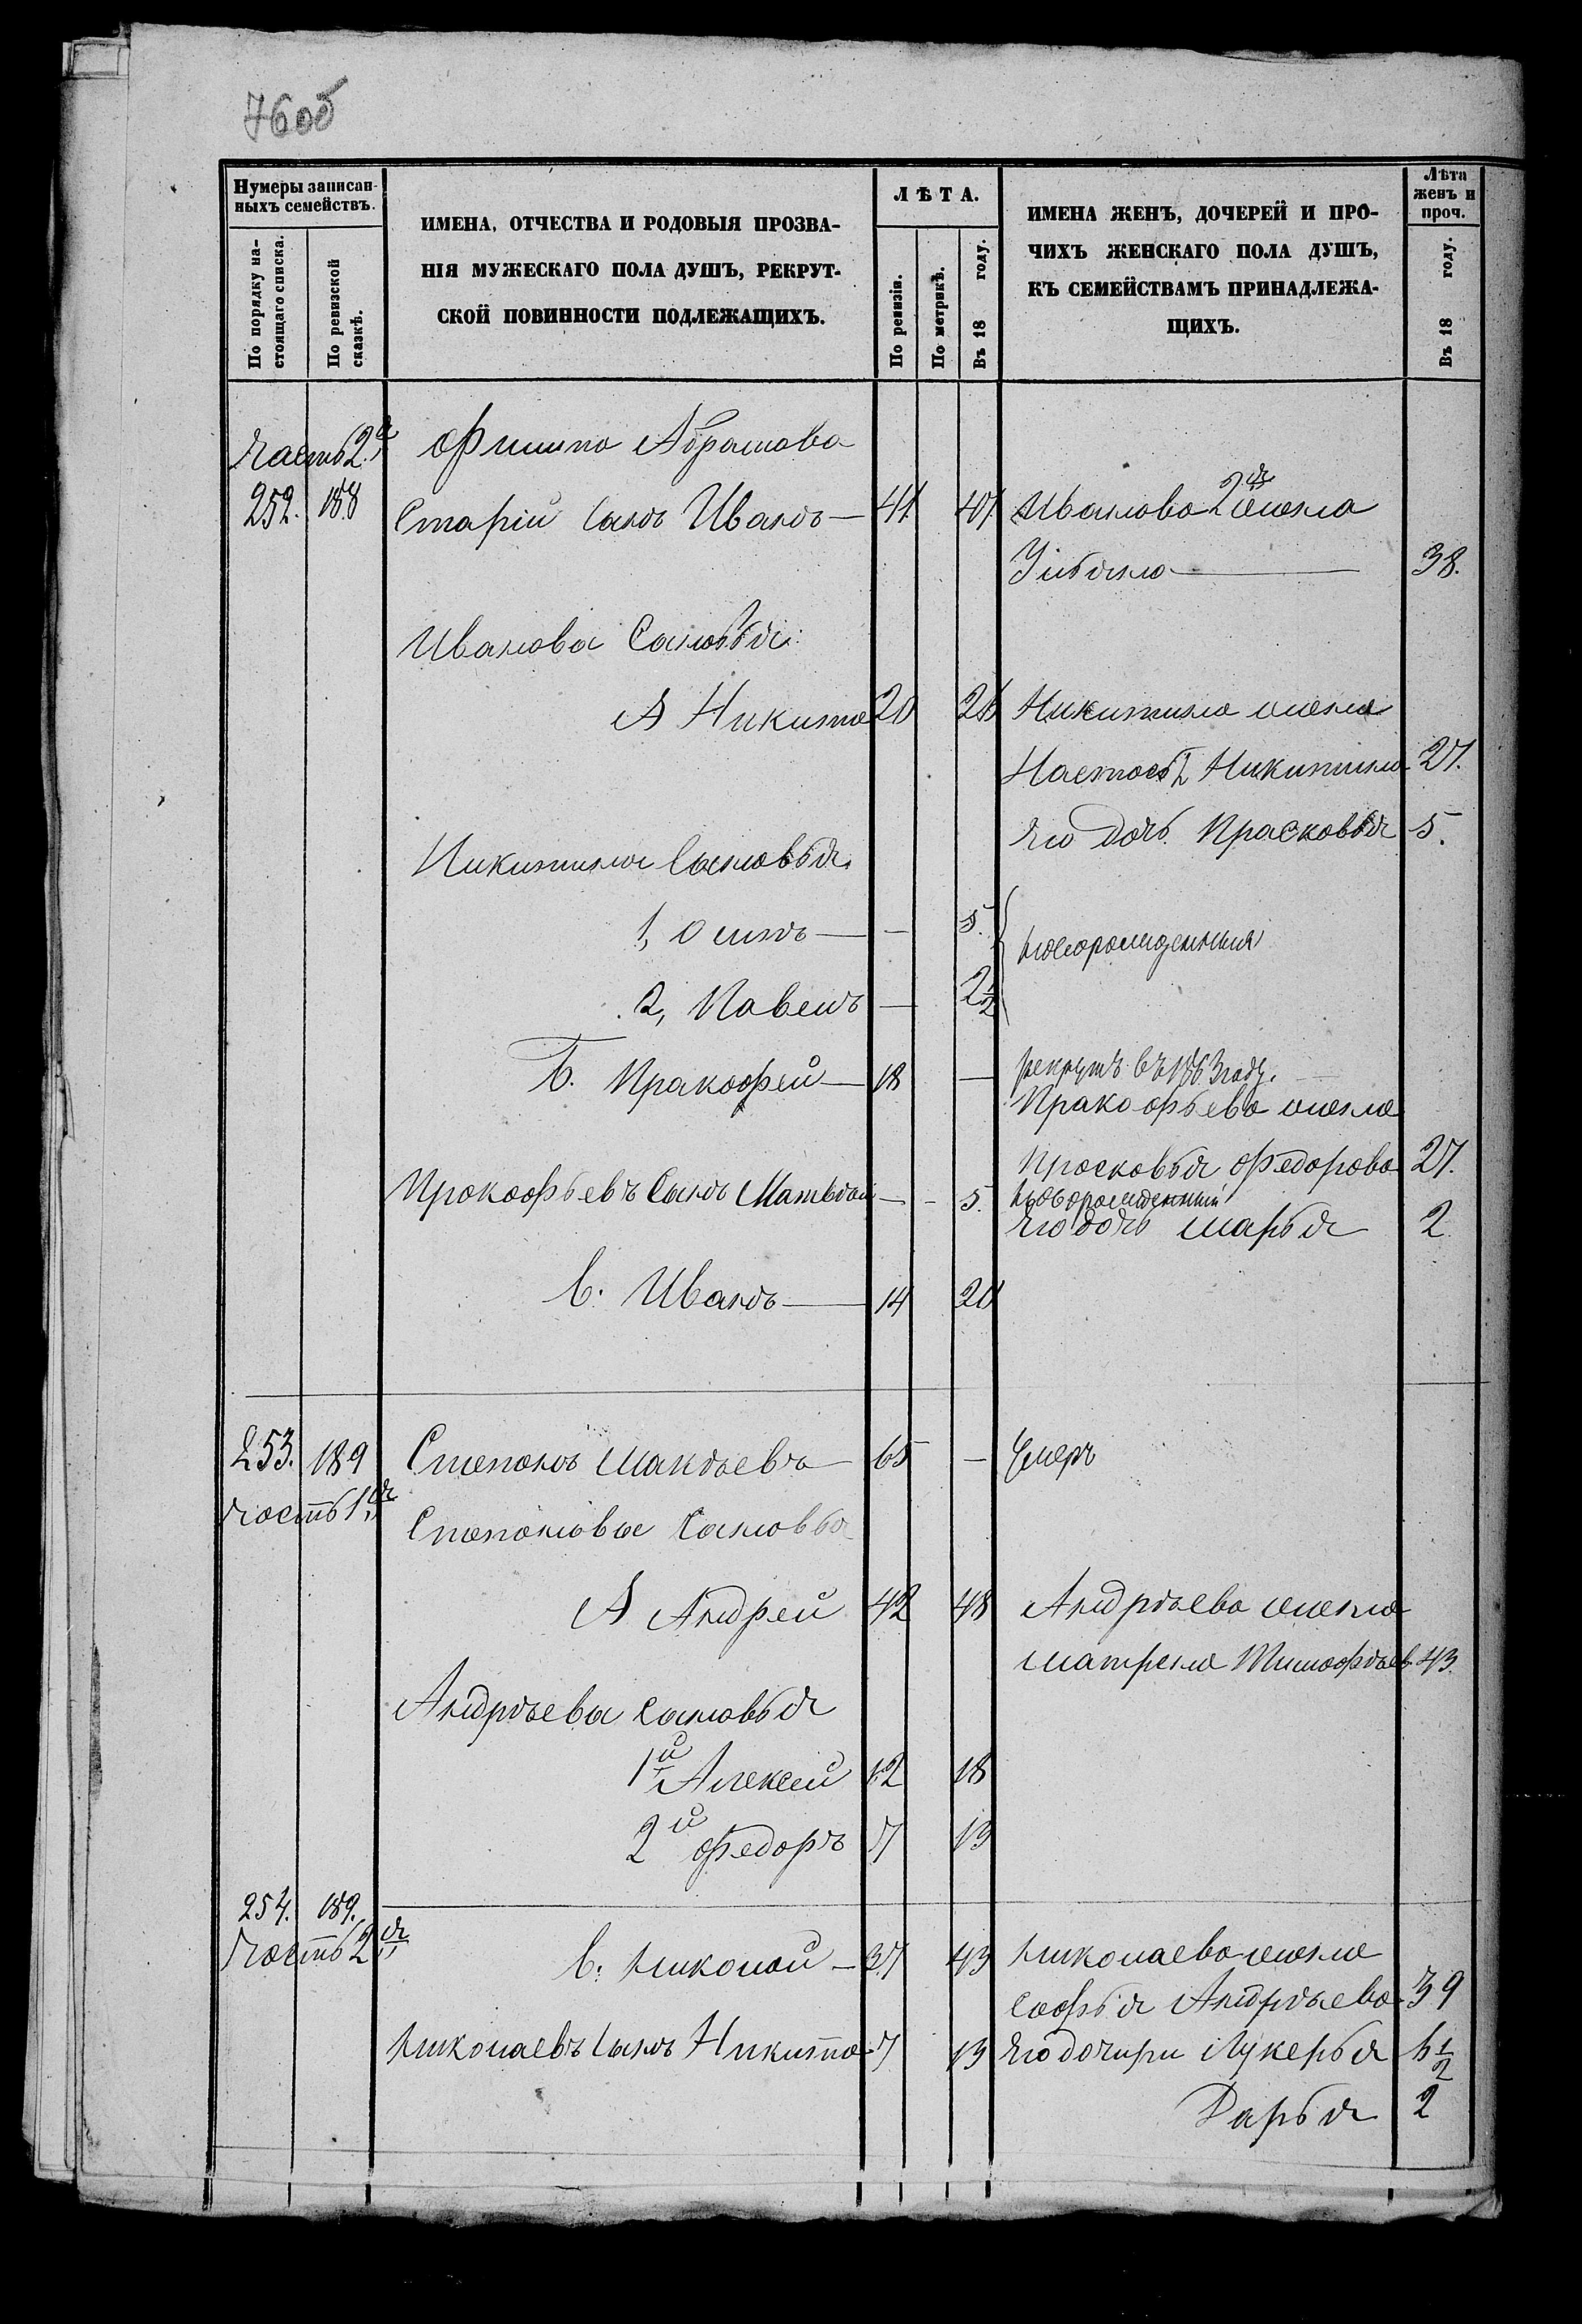 76об
Нумеры записан-
ныхъ семействъ.
По порядку на-
стоящаго списка.
По ревизской
сказкѣ.
ИМЕНА, ОТЧЕСТВА И РОДОВЫЯ ПРОЗВА-
НІЯ МУЖЕСКАГО ПОЛА ДУШЪ, РЕКРУТ-
СКОЙ ПОВИННОСТИ ПОДЛЕЖАЩИХЪ.
ЛѢТА.
По ревизіи.
По метрикѣ.
Въ 18 году.
ИМЕНА ЖЕНЪ, ДОЧЕРЕЙ И ПРО-
ЧИХЪ ЖЕНСКАГО ПОЛА ДУШЪ,
КЪ СЕМЕЙСТВАМЪ ПРИНАДЛЕЖА-
ЩИХЪ.
Лѣта
женъ и
проч.
Въ 18 году.
Часть 2я Филипа Абрамова
252. 188 Старій Сынъ Иванъ — 41 47 Иванова 2я жена
38.
Ивановы Сыновья:
А Никита 20 26 Никитина жена
Настасья Никитина 27.
Его дочь Прасковья 5.
Никитины Сыновья
1, Осипъ — — 5.
новорожденныя
2, Павелъ — 2½
Б. Пракофей — 18 — рекрутъ въ 1863 году.
Пракофьева жена
Просковья Федорова 27.
Прокофьевъ Сынъ Матвѣй — - 5. новорожденный
Его дочь Марья 2
В. Иванъ — 14 20
253. 189 Степанъ Макѣевъ — 65 — Умеръ
Часть 1я
Степановые Сыновья
А Андрей 42 48 Андрѣева жена
Матрена Тимофѣев 43.
Андрѣевы Сыновья
1й Алексей 12 18
2й Федоръ 7 13
254. 189.
Часть 2я
В. Николай — 37 43 Николаева жена
Софья Андрѣева 39
Николаевъ Сынъ Никита 7 13 Его дочири Лукерья 6½
Дарья 2